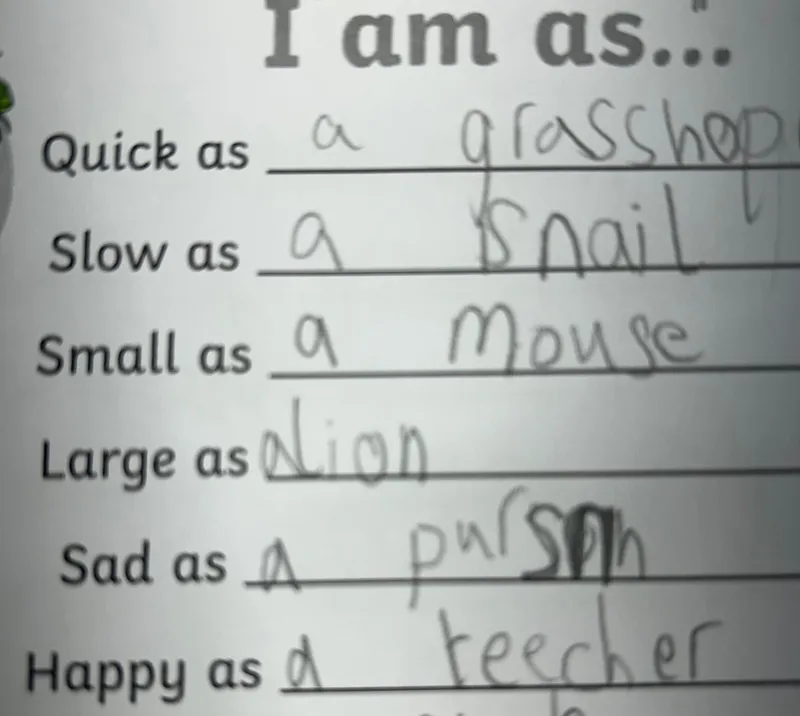 I am as...
Quick as a grasshop
Slow as a snail
Small as a mouse
Large as a lion
Sad as a purson
Happy as a teecher